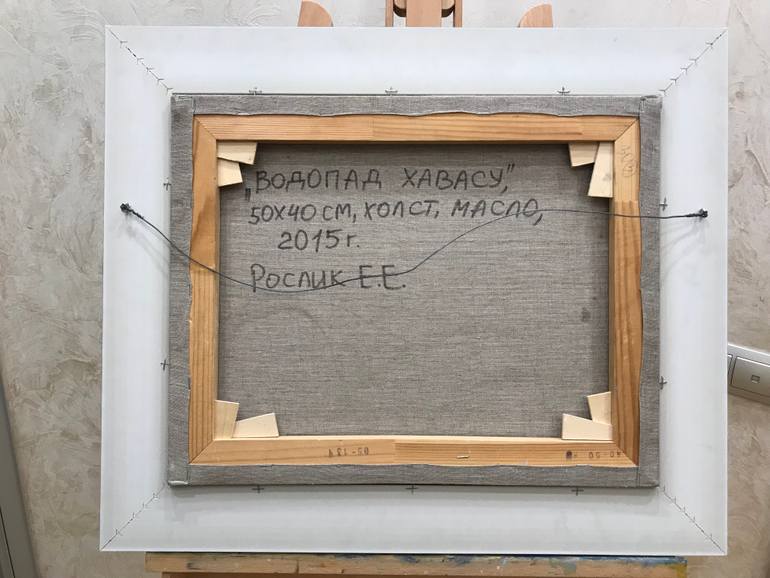 „ВОДОПАД ХАВАСУ",
50Х40 СМ, ХОЛСТ, МАСЛО,
2015 г.
РОСЛИК Е.Е.
05-134